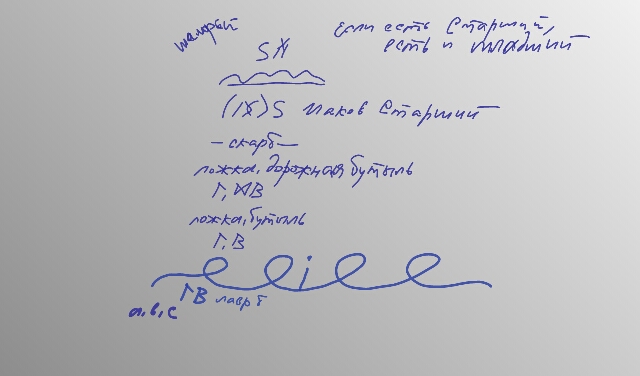 Если есть Старший,
есть и младший
SN
(IX)S Иаков Старший
-скарб-
ложка, дорожная бутыль
Г, МВ
ложка, бутыль
Г, В
ГВ лавр б
a, b, c